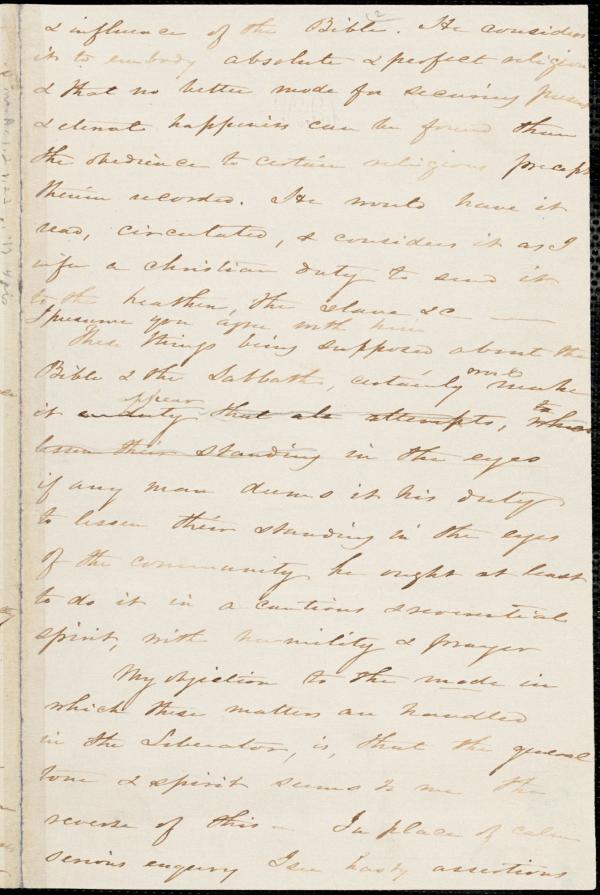 & influence of the Bible. He considers
it to embody absolute & perfect religion
& that no better mode for securing present
& eternal happiness can be found than
the obedience to certain religious precepts
therein recorded. He would have it
read, circulated, & considers it as I
infer a christian duty to send it
to the heathen, the slave &c —
I presume you agree with him
These things being supposed about the
Bible & the Sabbath, certainly would make
it appear that all attempts, to which
lessen their standing in the eyes
if any man deems it his duty
to lessen their standing in the eyes
of the community he ought at least
to do it in a cautious & reverential
spirit, with humility & prayer
My objection to the mode in
which these matters are handled
in the Liberator, is, that the general
tone & spirit seems to me the
reverse of this — In place of calm
serious enquiry I see hasty assertions